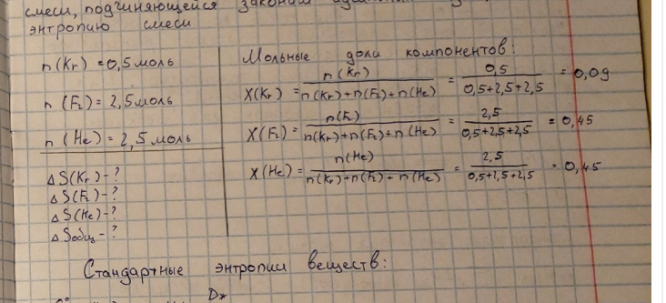 смеси, подчиняющейся законам
энтропию смеси
n(Kr) = 0,5 моль
n(F₂) = 2,5 моль
n(He) = 2,5 моль
ΔS(Kr) - ?
ΔS(F₂) - ?
ΔS(He) - ?
ΔSобщ - ?
Мольные доли компонентов:
X(Kr) = n(Kr) / n(Kr)+n(F₂)+n(He) = 0,5 / 0,5+2,5+2,5 = 0,09
X(F₂) = n(F₂) / n(Kr)+n(F₂)+n(He) = 2,5 / 0,5+2,5+2,5 = 0,45
X(He) = n(He) / n(Kr)+n(F₂)+n(He) = 2,5 / 0,5+2,5+2,5 = 0,45
Стандартные энтропии веществ: